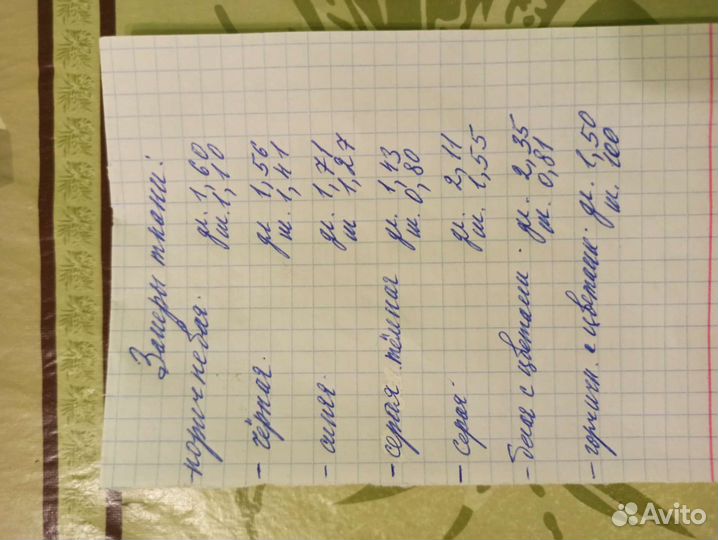 Замеры ткани:
- коричневая. дл. 1,60
ш. 1,10
- чёрная. дл 1,56
ш. 1,41
- синяя. дл. 1,71
ш 1,27
- серая тёмная дл. 1,43
ш. 0,80
- серая. дл. 2,11
ш. 1,55
- белая с цветами. дл. 2,35
ш. 0,81
- горчичн. с цветами. дл. 1,50
ш. 100
Avito